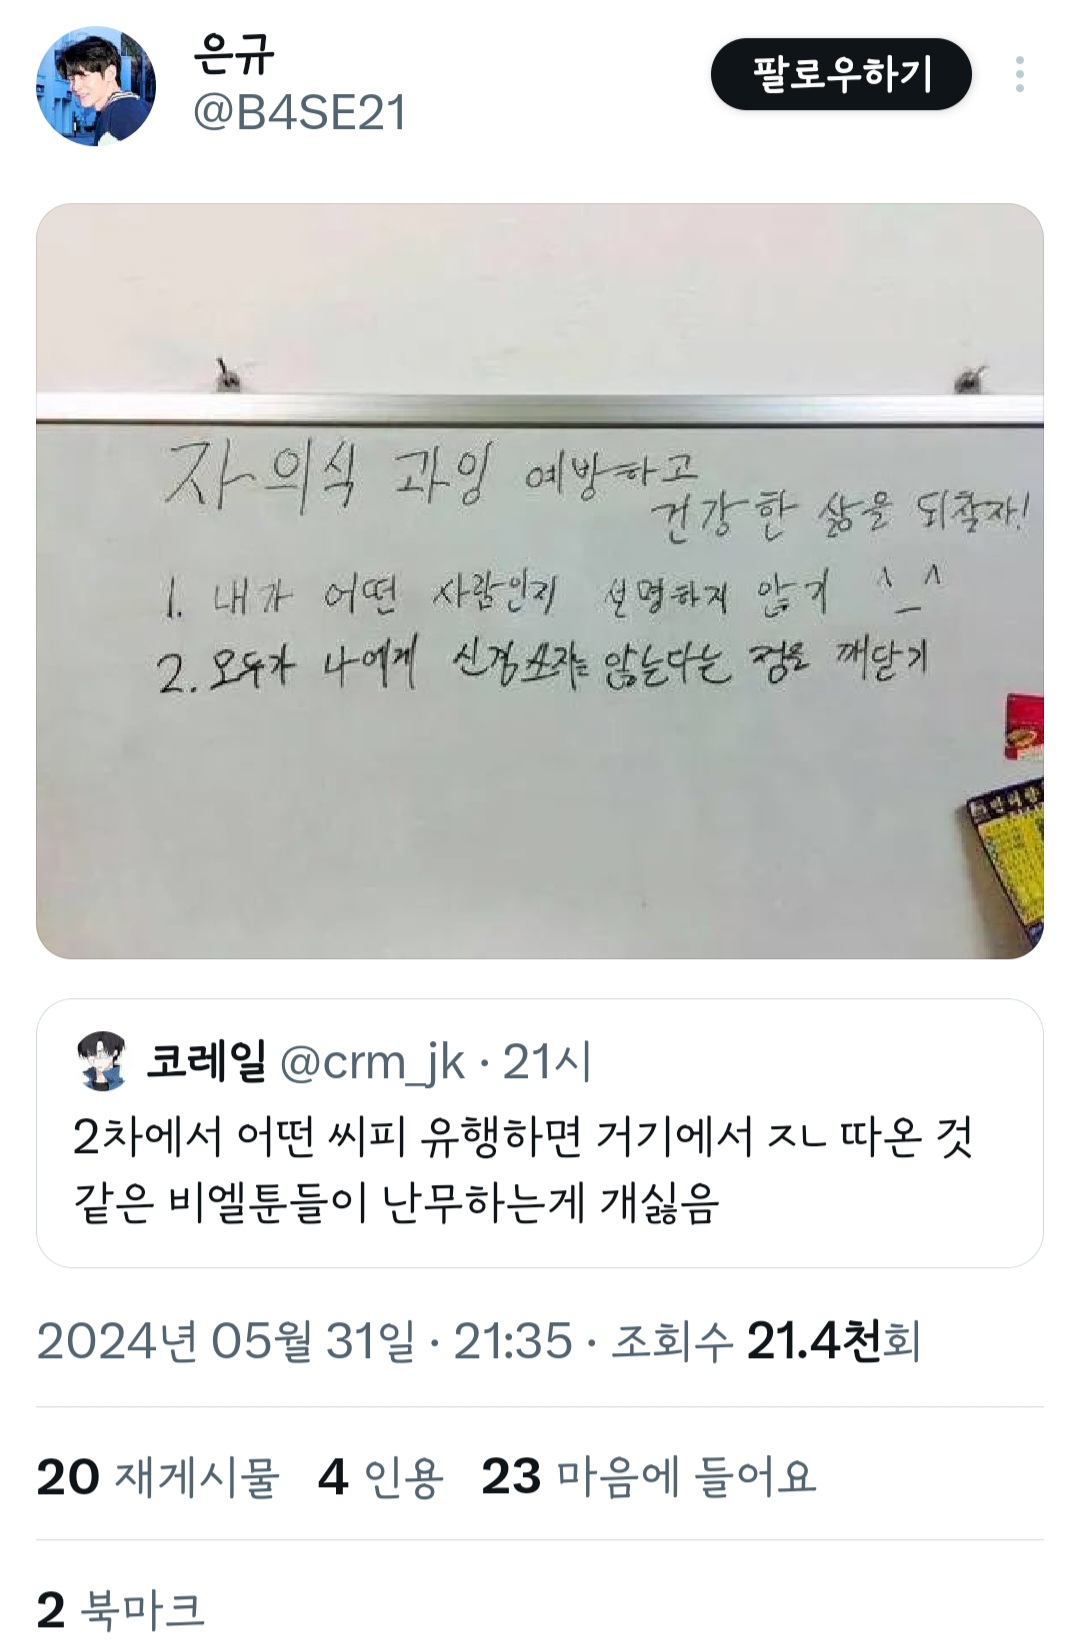 은규
@B4SE21
팔로우하기
자의식 과잉 예방하고
건강한 삶을 되찾자!
1. 내가 어떤 사람인지 설명하지 않기 ^_^
2. 모두가 나에게 신경쓰지는 않는다는 점을 깨닫기
코레일 @crm_jk · 21시
2차에서 어떤 씨피 유행하면 거기에서 ㅈㄴ 따온 것
같은 비엘툰들이 난무하는게 개싫음
2024년 05월 31일 · 21:35 · 조회수 21.4천회
20 재게시물 4 인용 23 마음에 들어요
2 북마크